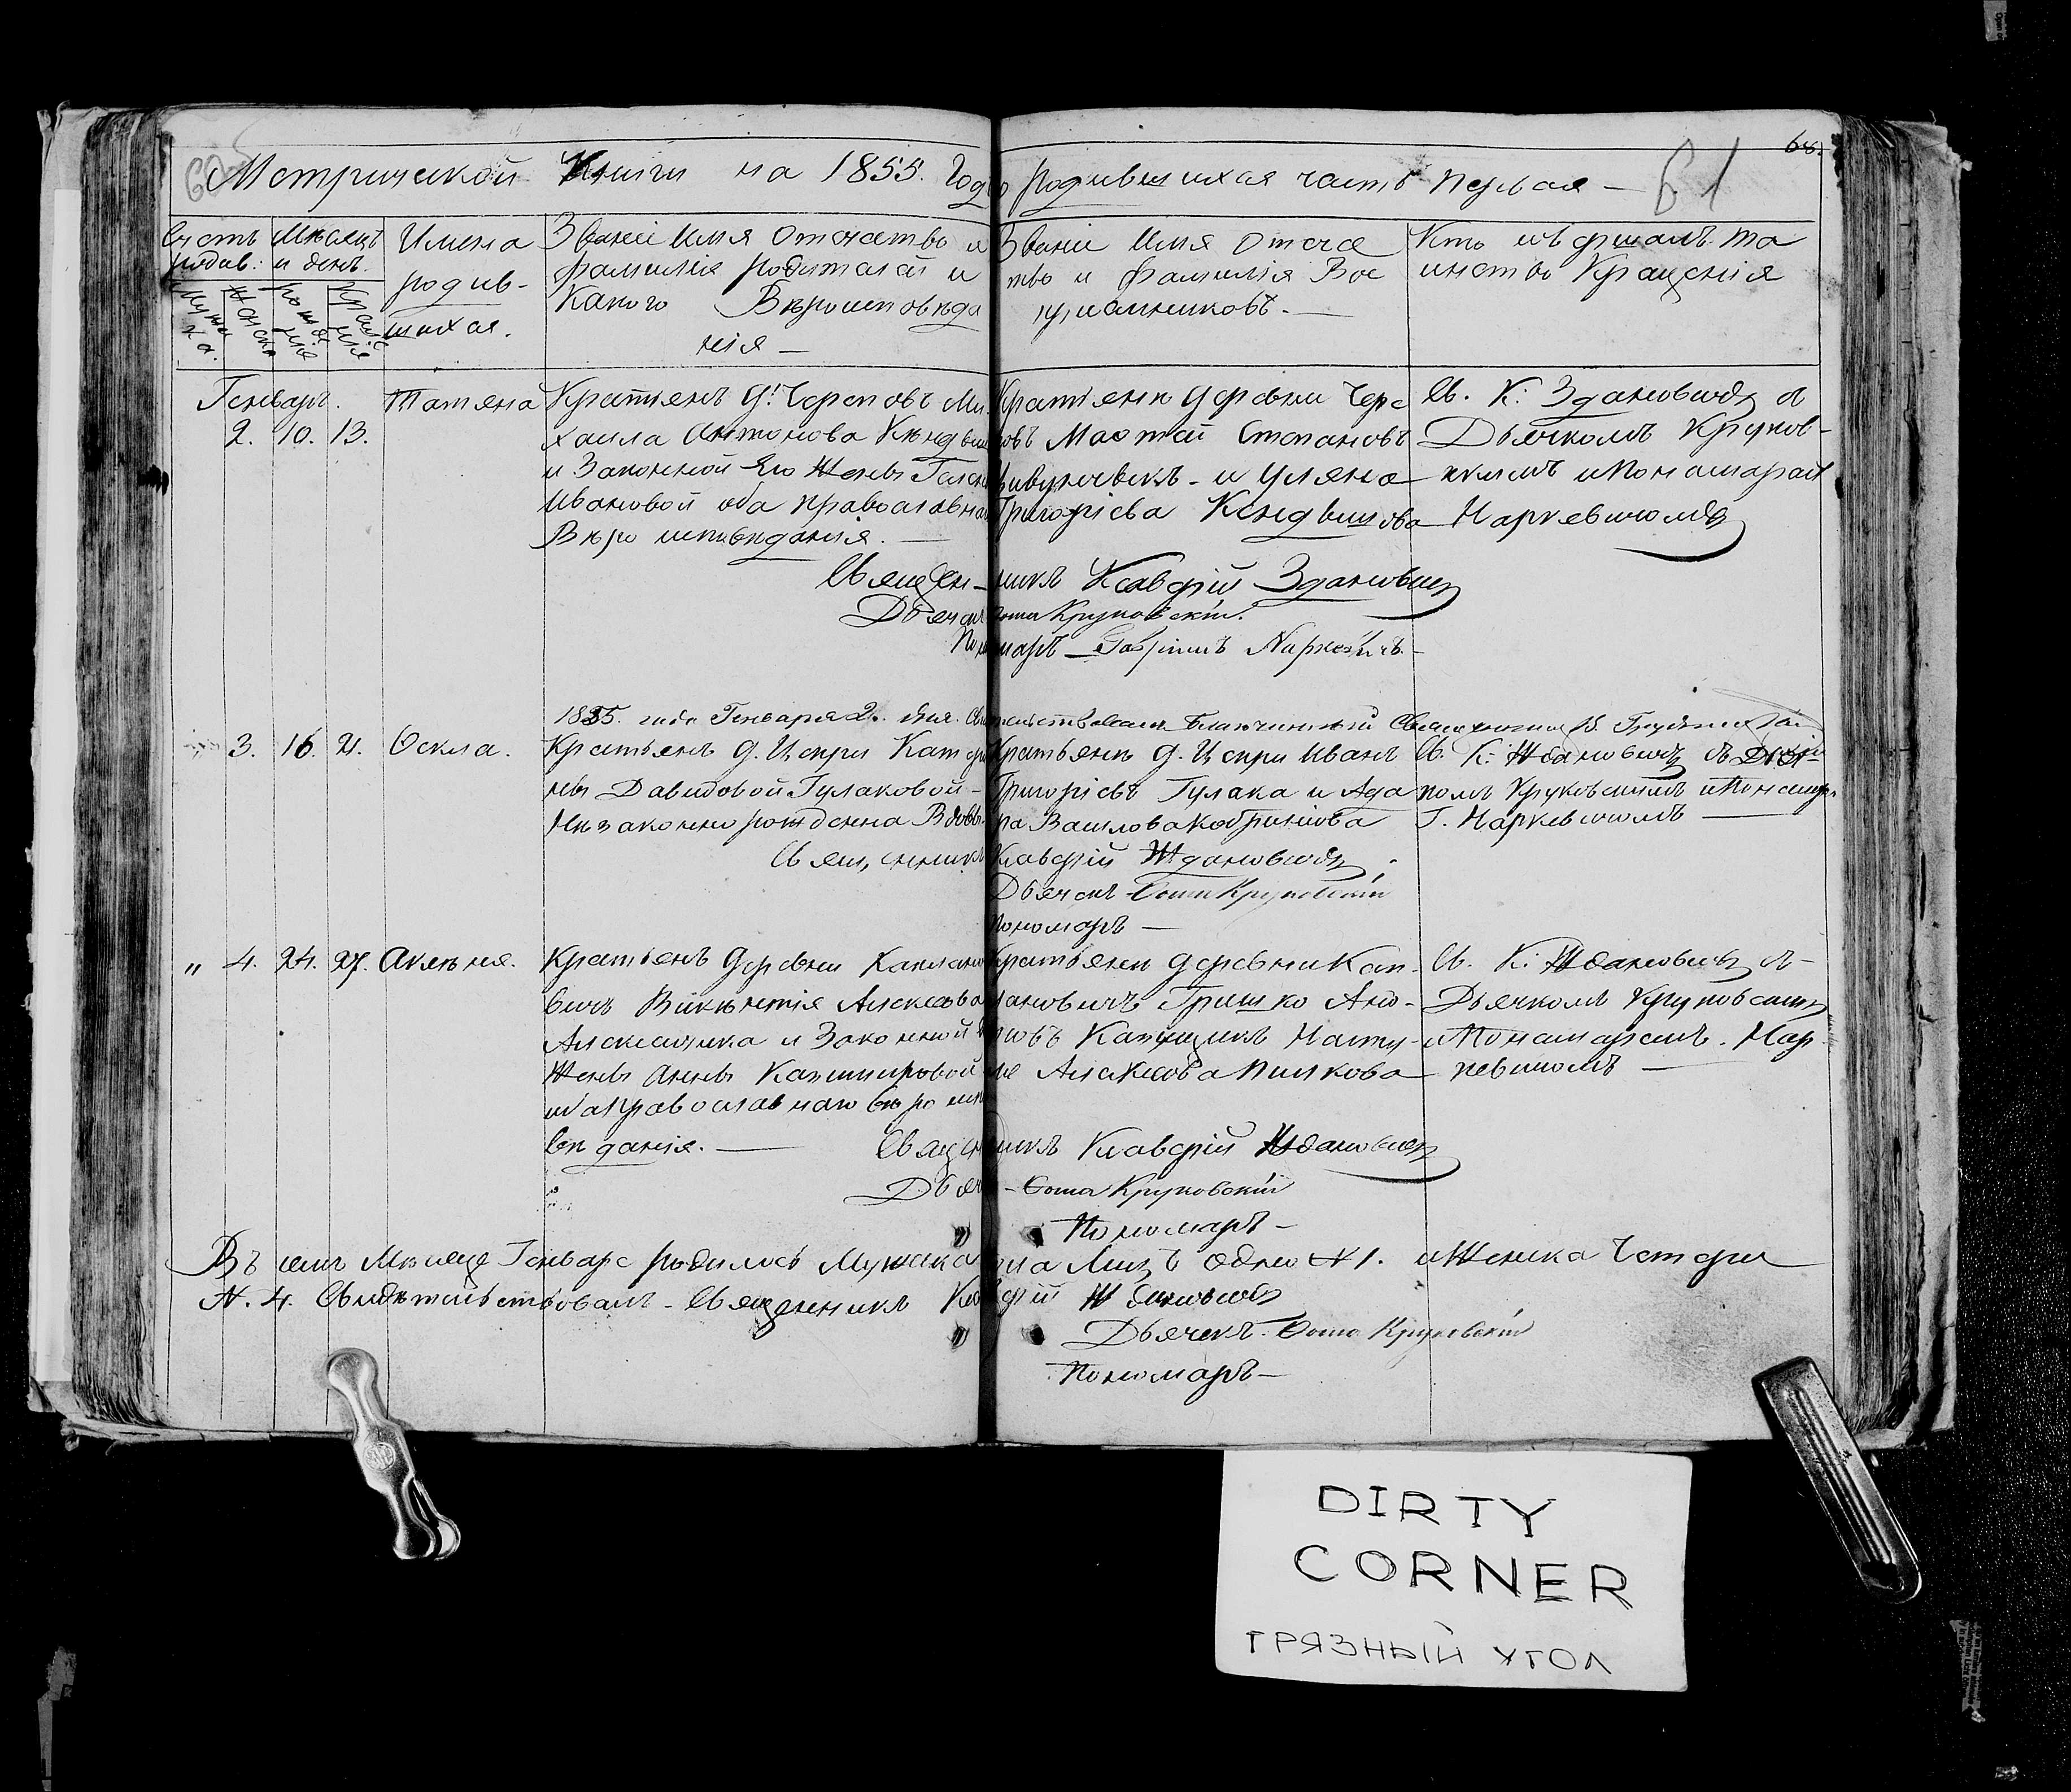 68.
60
61
Метрической Книги на 1855. Годъ о родившихся часть первая —
Счетъ родив:
Мѣсяцъ и день.
Имена родив-
шихся.
Званіе Имя Отчество и
фамилія родителей и
Какого Вѣроисповѣда
нія —
Званіе Имя Отече
тво и Фамилія Вос
пріемниковъ. —
Кто совершалъ та
инство Крещенія
Генварь.
2. 10. 13.
Татяна
Крестьянъ Д. Черсповъ Ми
хаила Антонова
и Законной Его Жены
Ивановой оба православна
Вѣро исповѣданія. —
Крестьянъ деревни Черс
повъ Матѳей Степановъ
и Уляна
Григоріева
Св. К: Здановичъ съ
Дьячкомъ Круков-
скимъ и Пономаремъ
Наркевичомъ
Священ-никъ Ксаверій Здановичъ
Дьячекъ Ѳома Круковскій.
Пономаръ — Габріилъ Наркевичъ. —
1855. года Генваря 2. дня. Свидетельствовалъ Благочинный Священникъ
3. 16. 21. Ѳекла.
Крестьянъ д. Цепри Катери
ны Давидовой Гулаковой —
Незаконно рожденна Вдовы
Крестьянъ д. Цепри Иванъ
Григоріевъ Гулака и Ада
Св. К: Ждановичъ съ Дья
комъ Круковскимъ и Пономар.
Г. Наркевичомъ —
Священникъ Ксаверій Ждановичъ
Дьячекъ Ѳома Круковскій
Пономаръ —
„ 4. 24. 27. Акліна.
Крестьянъ Деревни Каплано
вичъ Викентія Алексѣева
и Законной
Жены Анны Казимировой
православнаго вѣро исп
вѣданія. —
Крестьянъ деревни Кап-
лановичъ Гришко Анто-
новъ
Алексѣева
Св. К: Ждановичъ съ —
Дьячкомъ Круковскимъ
и Пономаремъ. Нар
кевичомъ —
Священникъ Ксаверій Ждановичъ
Дьячекъ — Ѳома Круковскій
Пономаръ —
Въ семъ Мѣсяце Генваре родилось Мужска пола Лицъ Одно №1. и Женска Четыри
№. 4. Свидѣтельствовалъ — Священникъ Ксаверій Ждановичъ
Дьячекъ. Ѳома Круковскій
Пономаръ —
DIRTY
CORNER
ГРЯЗНЫЙ УГОЛ